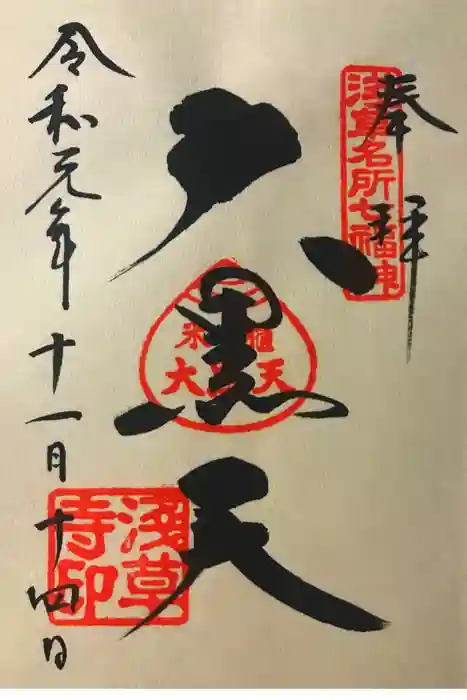 奉拝
浅草名所七福神
大黒天
米櫃
大黒天
浅草
寺印
令和元年十一月十四日